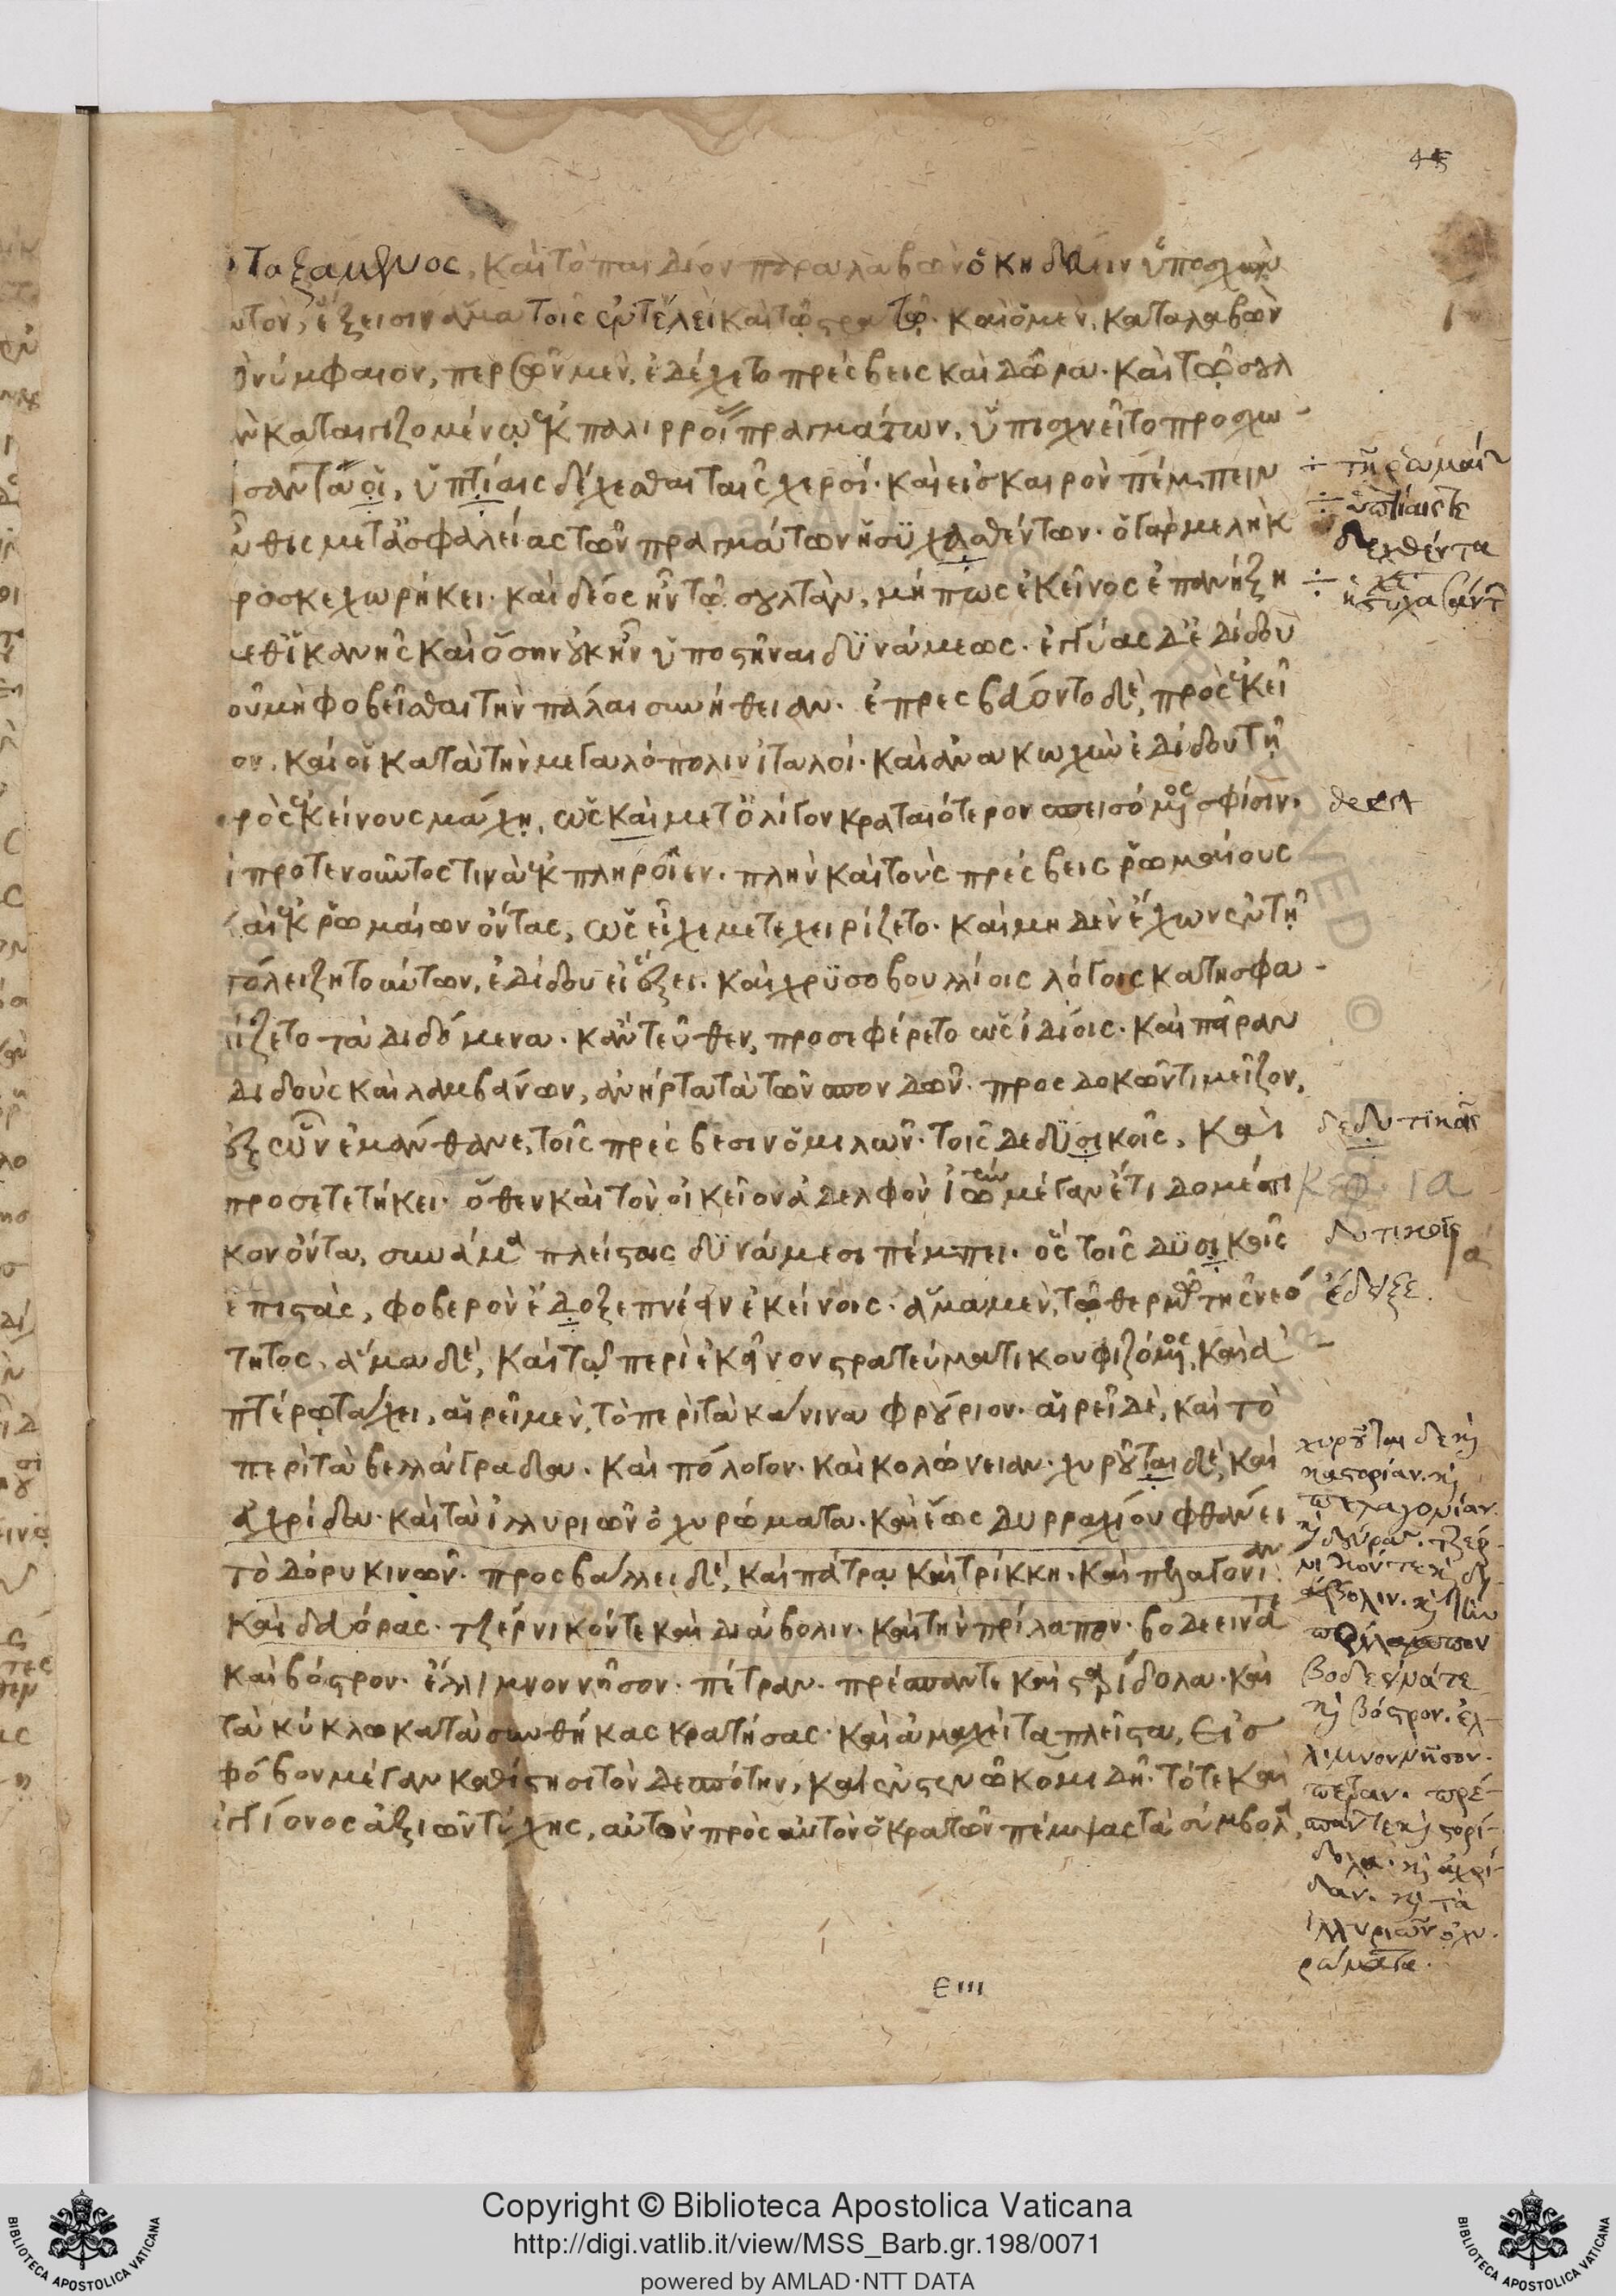 45
ταξαμένος, καὶ τὸ παιδίον παραλαβὼν ὁ κηδεύειν ὑποσχὼν
υτὸν, ἔξεισιν ἅμα τοῖς ἐν τέλει καὶ τῷ στρατῷ. καὶ ὁ μὲν, καταλαβὼν
ὸ νύμφαιον, περσῶν μὲν, ἐδέχετο πρέσβεις καὶ δῶρα. καὶ τῷ σουλ
ὰν καταιγιζομένῳ ἐκ παλιρροίας πραγμάτων, ὑπισχνεῖτο προσχω-
ήσαντά οἱ, ὑπτίαις δέχεσθαι ταῖς χερσί. καὶ εἰς καιρὸν πέμπειν
ὖθις μετ' ἀσφαλείας τῶν πραγμάτων ἡσυχασθέντων. ὁ γὰρ μελὴκ
ροσκεχωρήκει. καὶ δέος ἦν τῷ σουλτὰν, μή πως ἐκεῖνος ἐπανήξῃ
μεθ' ἱκανῆς καὶ ὅσην οὐκ ἦν ὑποστῆναι δυνάμεως. ἐγγύας δ' ἐδίδου
οῦ μὴ φοβεῖσθαι τὴν πάλαι συνήθειαν. ἐπρεσβεύοντο δὲ, πρὸς ἐκεῖ
ον, καὶ οἱ κατὰ τὴν μεγαλόπολιν ἰταλοί. καὶ ἀνακωχὴν ἐδίδου τῇ
ρὸς ἐκείνους μάχῃ, ὡς καὶ μετ' ὀλίγον κραταιότερον σπεισόμενος σφίσιν.
ἱ προτενοῦντός τινα ἐκπληροῖεν. πλὴν καὶ τοὺς πρέσβεις ῥωμαίους
αὶ ἐκ ῥωμαίων ὄντας, ὡς εἶχε μετεχειρίζετο. καὶ μηδὲν ἔχων ἐν τῇ
πόλει ζητούντων, ἐδίδου εἰ ἕξει. καὶ χρυσοβουλλίοις λόγοις κατησφα-
ίζετο τὰ διδόμενα. κἀντεῦθεν, προσεφέρετο ὡς ἰδίοις. καὶ παρ' ἂν
διδοὺς καὶ λαμβάνων, ἀνήρτα τὰ τῶν σπονδῶν. προσδοκῶν τι μεῖζον,
ἐξ ὧν ἐμάνθανε, τοῖς πρέσβεσιν ὁμιλῶν. τοῖς δὲ δυσικοῖς, καὶ
προσετετήκει. ὅθεν καὶ τὸν οἰκεῖον ἀδελφὸν ἰωάννην μέγαν ἔτι δομέστι
κον ὄντα, συνάμα πλείσταις δυνάμεσι πέμπει. ὃς τοῖς δυσικοῖς
ἐπιστὰς, φοβερὸν ἔδοξε πνέων ἐκείνοις. ἅμα μὲν, τῷ θερμῷ τῆς νεό
τητος, ἅμα δὲ, καὶ τῷ περὶ ἐκεῖνον στρατεύματι κουφιζόμενος, καὶ ὑ-
πτέρῳ τάχει, αἱρεῖ μὲν, τὸ περὶ τὰ κάνινα φρούριον. αἱρεῖ δὲ, καὶ τὸ
περὶ τὰ βελλάγραδα. καὶ πόλογον. καὶ κολώνειαν. χυροῦται δὲ, καὶ
ἀχρίδαν. καὶ τὰ ἰλλυριῶν ὀχυρώματα. καὶ ἕως δυρραχίου φθάνει
τὸ δόρυ κινῶν. προσβάλλει δὲ, καὶ πάτρα καὶ τρίκκη. καὶ πελαγονίαν
καὶ δεύρας. τζέρνικόν τε καὶ διάβολιν. καὶ τὴν πρίλαπον. βοδεεινά τε
καὶ βόστρον. ἔλλιμνον νῆσον. πέτραν. πρέσπαν τε καὶ σταρίδολα. καὶ
τὰ κύκλῳ κατὰ συνθήκας κρατήσας. καὶ ἀμαχεὶ τὰ πλεῖστα, εἰς
φόβον μέγαν καθίστησι τὸν δεσπότην, καὶ ἐν στενῷ κομιδῇ. τότε καὶ
μείζονος ἀξιῶν τύχης, αὐτὸν πρὸς αὐτὸν ὁ κρατῶν πέμψας τὰ σύμβολα,
÷ τῇ ῥωμαί
÷ ὑπτίαις τε
δεχθέντα
÷ ἡσυχασάντ
δεεστ
δεδυτικοῖς
Κεφ. ια
δυτικοῖς
ἔδειξε.
χυροῦται δὲ καὶ
καστορίαν. καὶ
πελαγονίαν.
καὶ δεύρας. τζέρ-
νικόν τε καὶ δι
άβολιν. καὶ τὴν
πρίλαπον
βοδεεινά τε
καὶ βόστρον. ἐλ-
λιμνον νῆσον.
πέτραν. πρέ-
σπαν τε καὶ στορί-
δολα. καὶ ἀχρί-
δαν. καὶ τὰ
ἰλλυριῶν ὀχυ-
ρώματα.
ε III
Copyright © Biblioteca Apostolica Vaticana
http://digi.vatlib.it/view/MSS_Barb.gr.198/0071
powered by AMLAD·NTT DATA
BIBLIOTECA APOSTOLICA VATICANA
BIBLIOTECA APOSTOLICA VATICANA